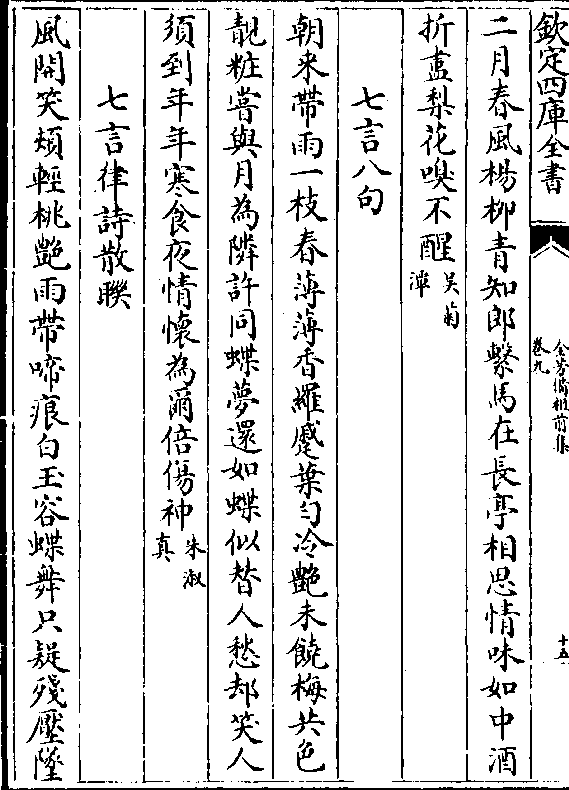 欽定四庫全書
全芳備祖前集
卷九
十五
二月春風楊柳青知郎繫馬在長亭相思情味如中酒
折盡梨花嗅不醒吳菊
潭
七言八句
朝來帶雨一枝春薄薄香羅蹙葉勻冷艶未饒梅共色
靚粧嘗與月為隣許同蝶夢還如蝶似替人愁却笑人
須到年年寒食夜情懷為爾倍傷神朱淑
真
七言律詩散聨
風開笑頰輕桃艶雨帶啼痕白玉容蝶舞只疑殘壓墜